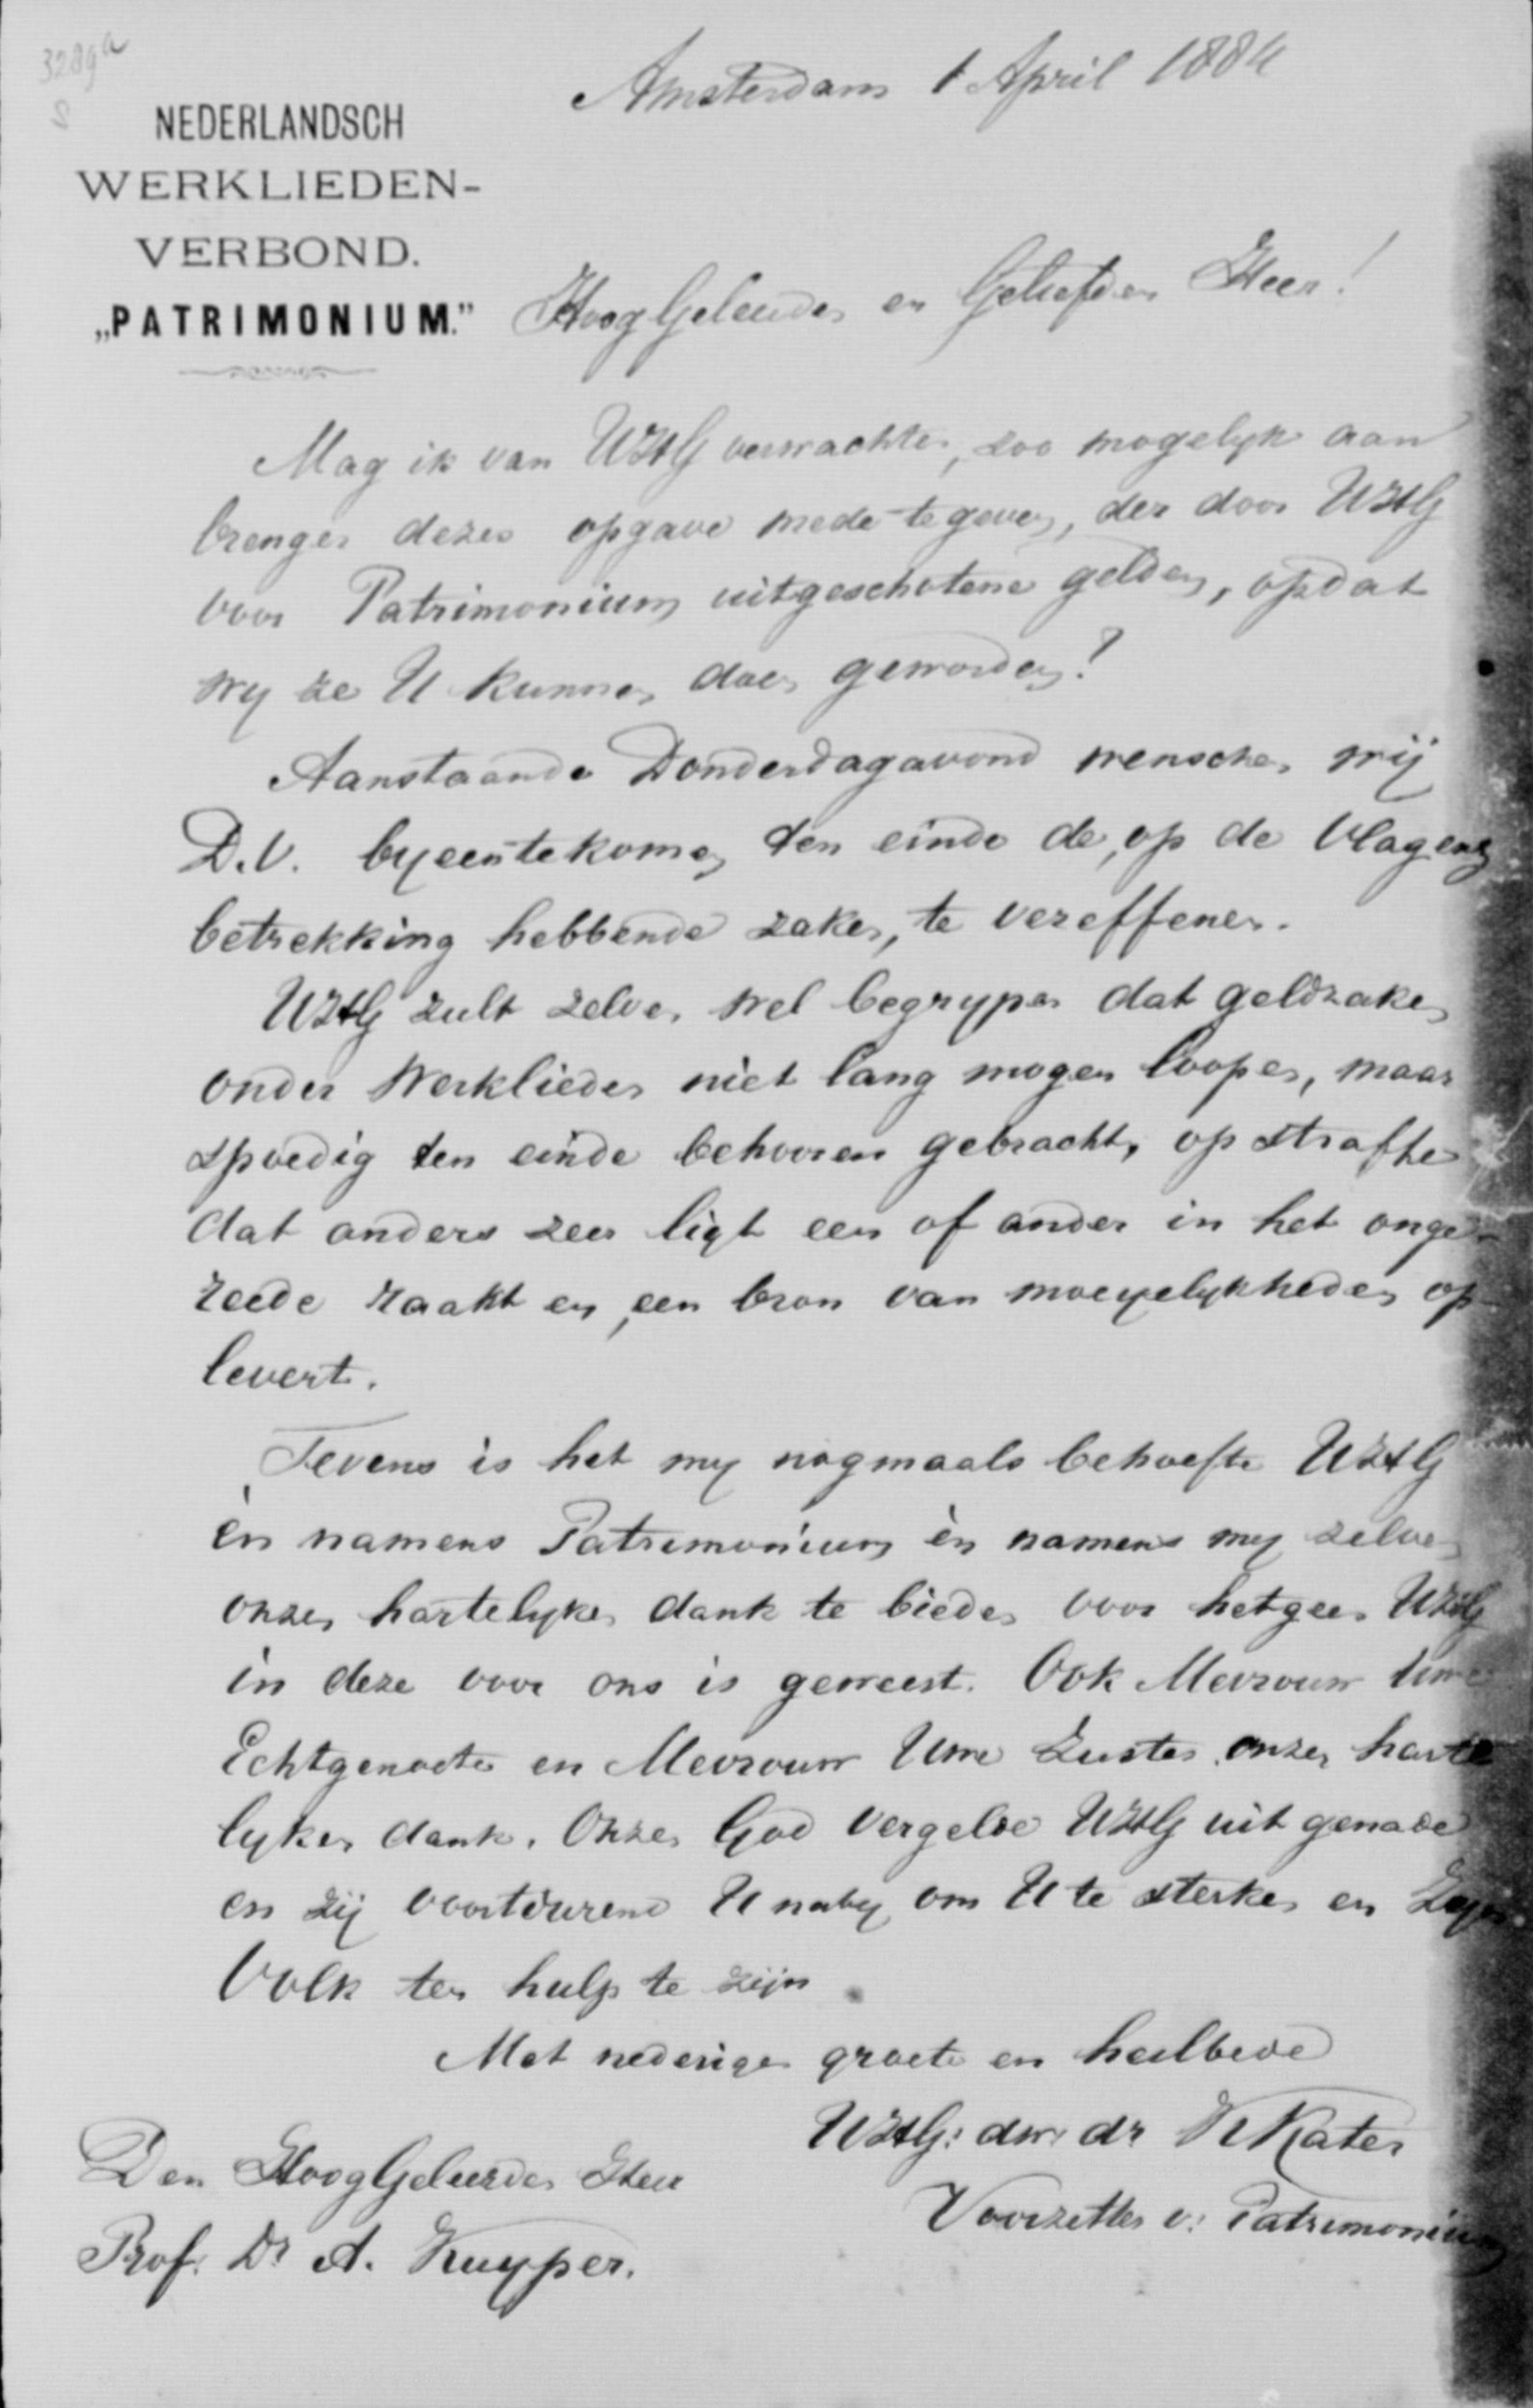 3289a
Amsterdam 1 April 1884
NEDERLANDSCH
WERKLIEDEN-
VERBOND.
„PATRIMONIUM.”
HoogGeleerde en Geliefden Heer!
Mag ik van UHG verwachten, zoo mogelyk aan
brenger dezes opgave mede te geven, der door UHG
voor Patrimonium uitgeschotene gelden, opdat
wy ze U kunnen doen geworden?
Aanstaande Donderdagavond wenschen wij
D.V. byeentekomen ten einde de, op de Vlaggen
betrekking hebbende zaken, te vereffenen.
UHG zult zelven wel begrypen dat geldzaken
onder Werklieden niet lang mogen loopen, maar
spoedig ten einde behooren gebracht, op straffe
dat anders zeer ligt een of ander in het onge-
reede raakt en een bron van moeyelykheden op-
levert.
Tevens is het my nogmaals behoefte UHG
èn namens Patrimonium èn namens my zelven
onzen hartelyken dank te bieden voor hetgeen UHG
in deze voor ons is geweest. Ook Mevrouw Uwe
Echtgenoote en Mevrouw Uwe Zuster onzen harte
lyken dank. Onze God vergelde UHG uit genade
en zij voortdurend U naby om U te sterken en Zyn
Volk ten hulp te zijn.
Met nederige groete en heilbede
UHG: dw: dr K Kater
Voorzitter v: Patrimonium
Den HoogGeleerden Heer
Prof. Dr A. Kuyper.